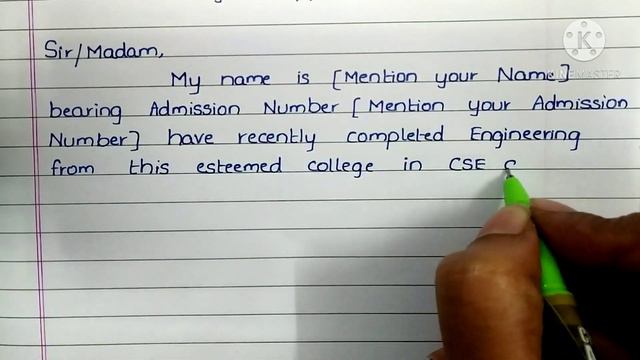 Sir/Madam,
My name is [Mention your Name]
bearing Admission Number [Mention your Admission
Number] have recently completed Engineering
from this esteemed college in CSE
KINEMASTER